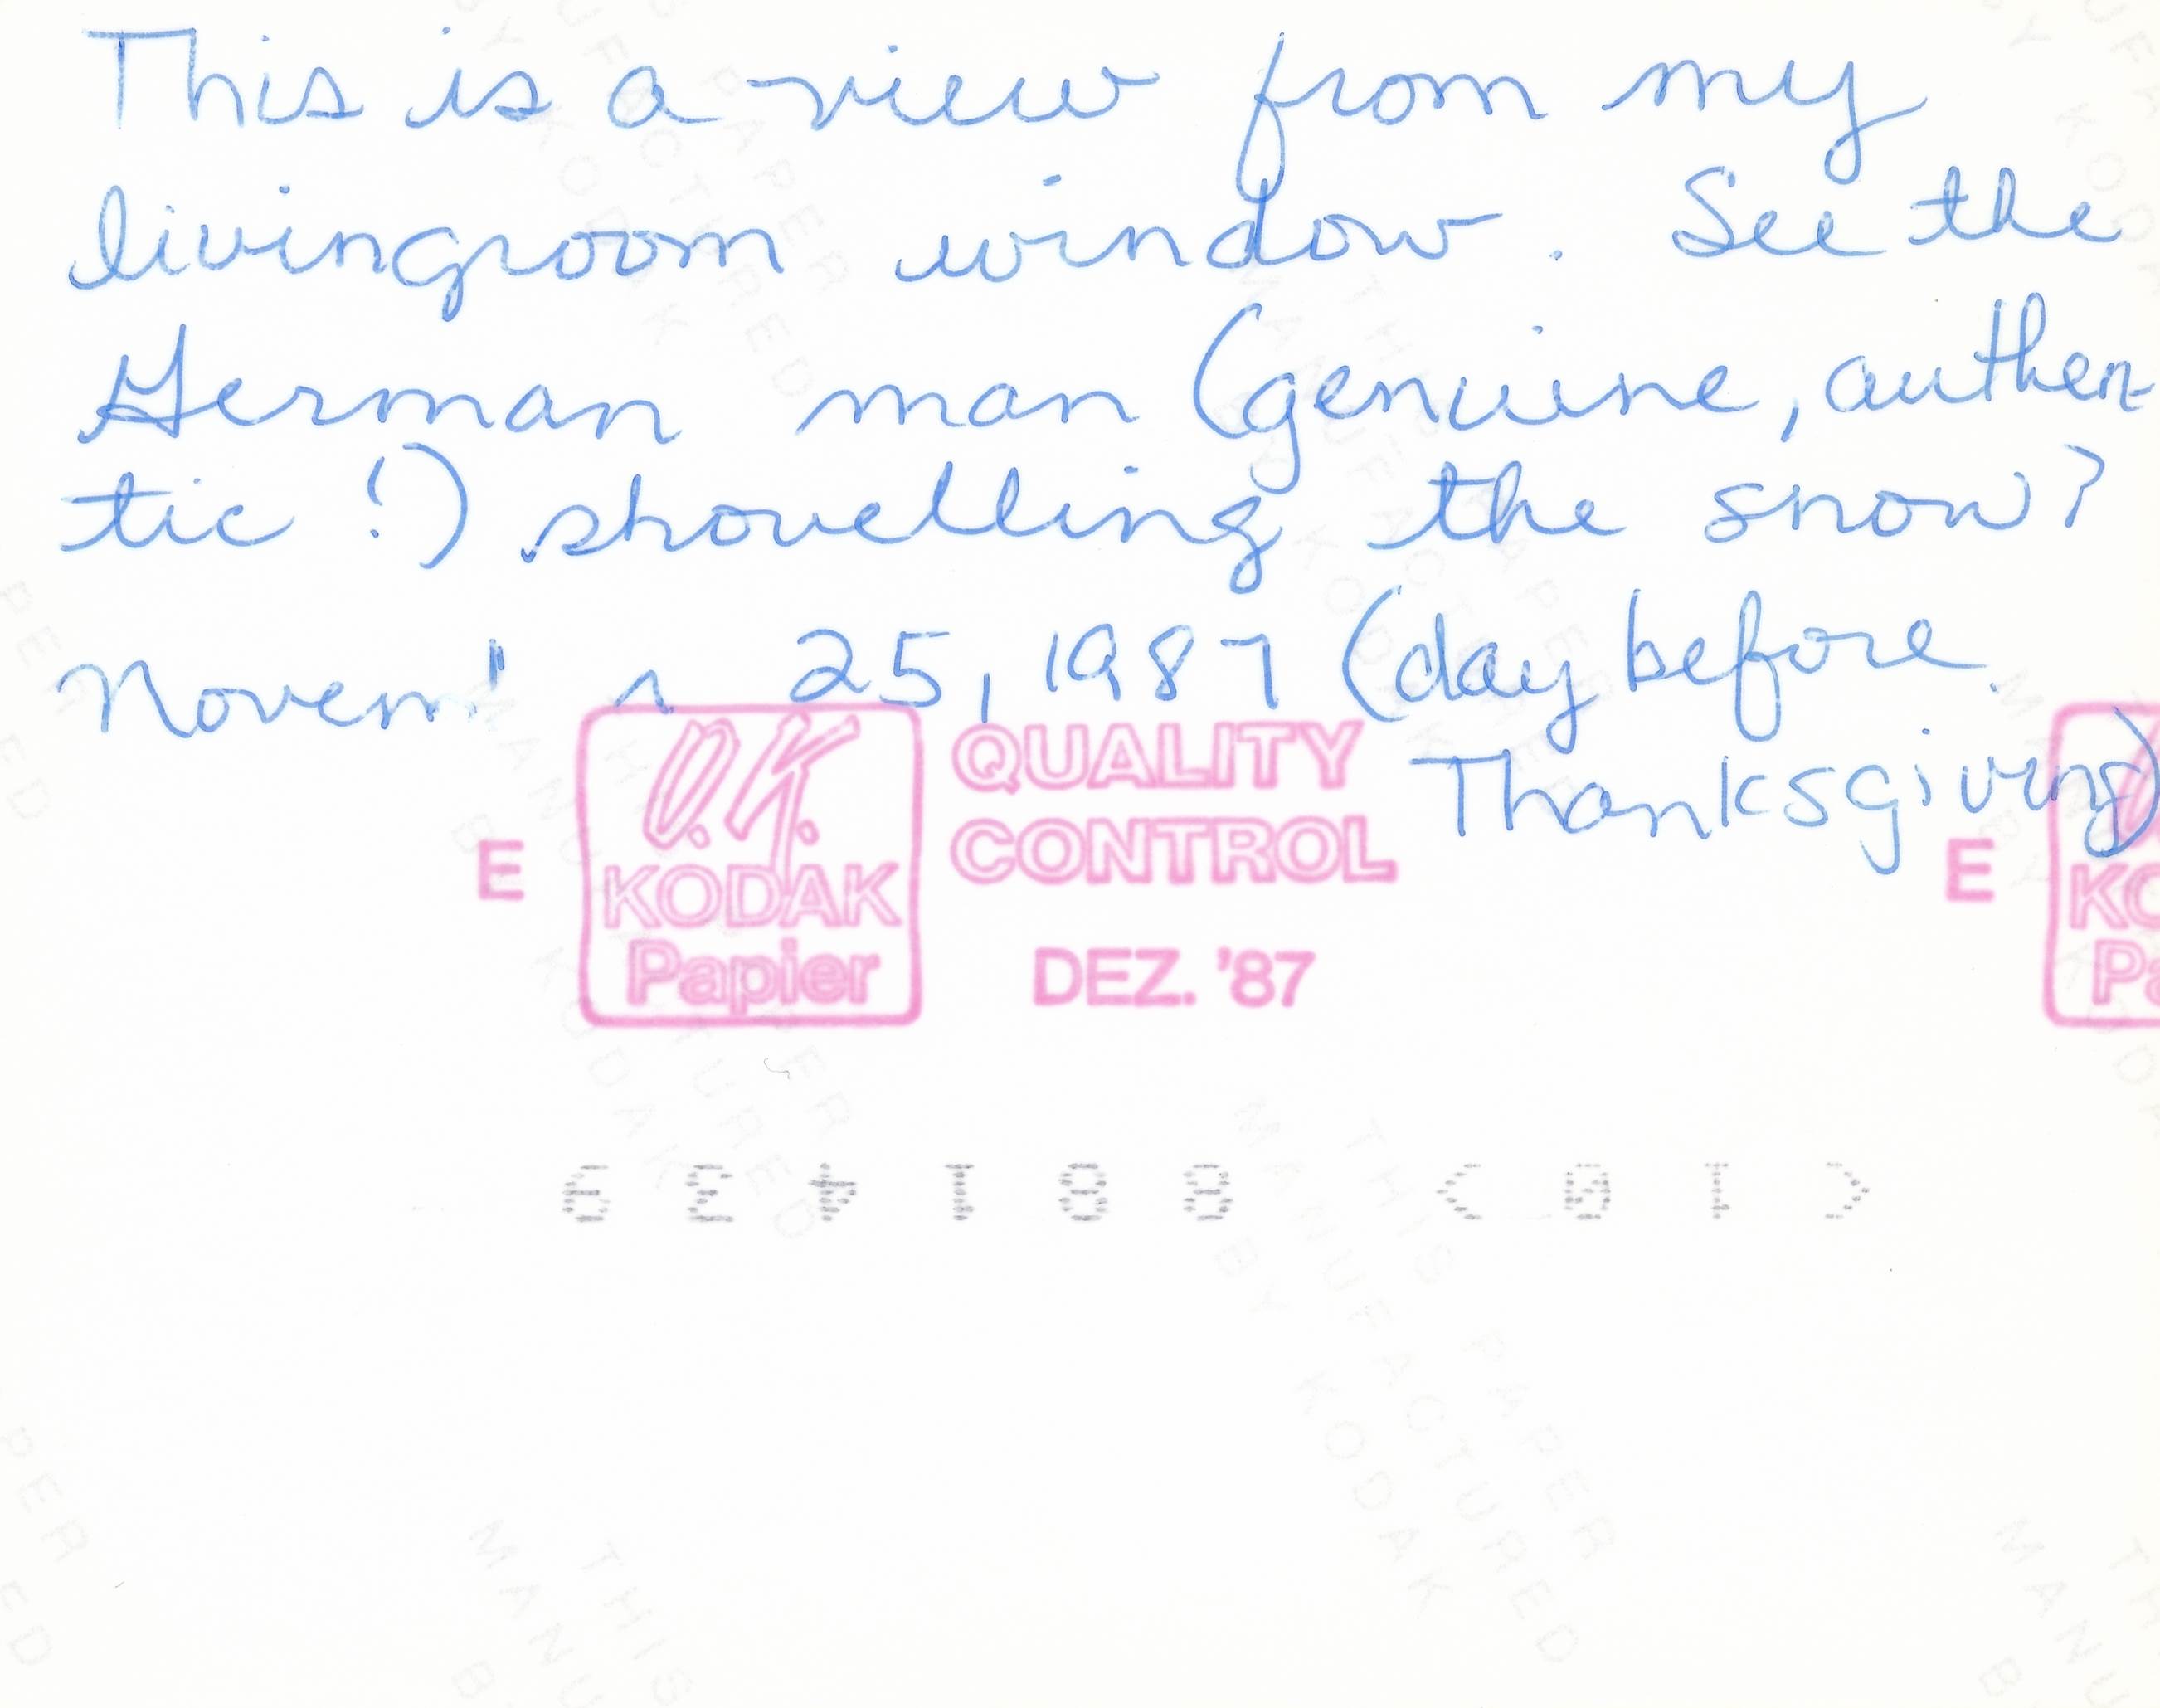 This is a view from my
livingroom window. See the
German man (genuine, authen-
tic!) shovelling the snow?
25, 1987 (day before
Thanksgiving)
E O.K. KODAK Papier QUALITY CONTROL DEZ. '87
E
THIS PAPER
MANUFACTURED
BY KODAK